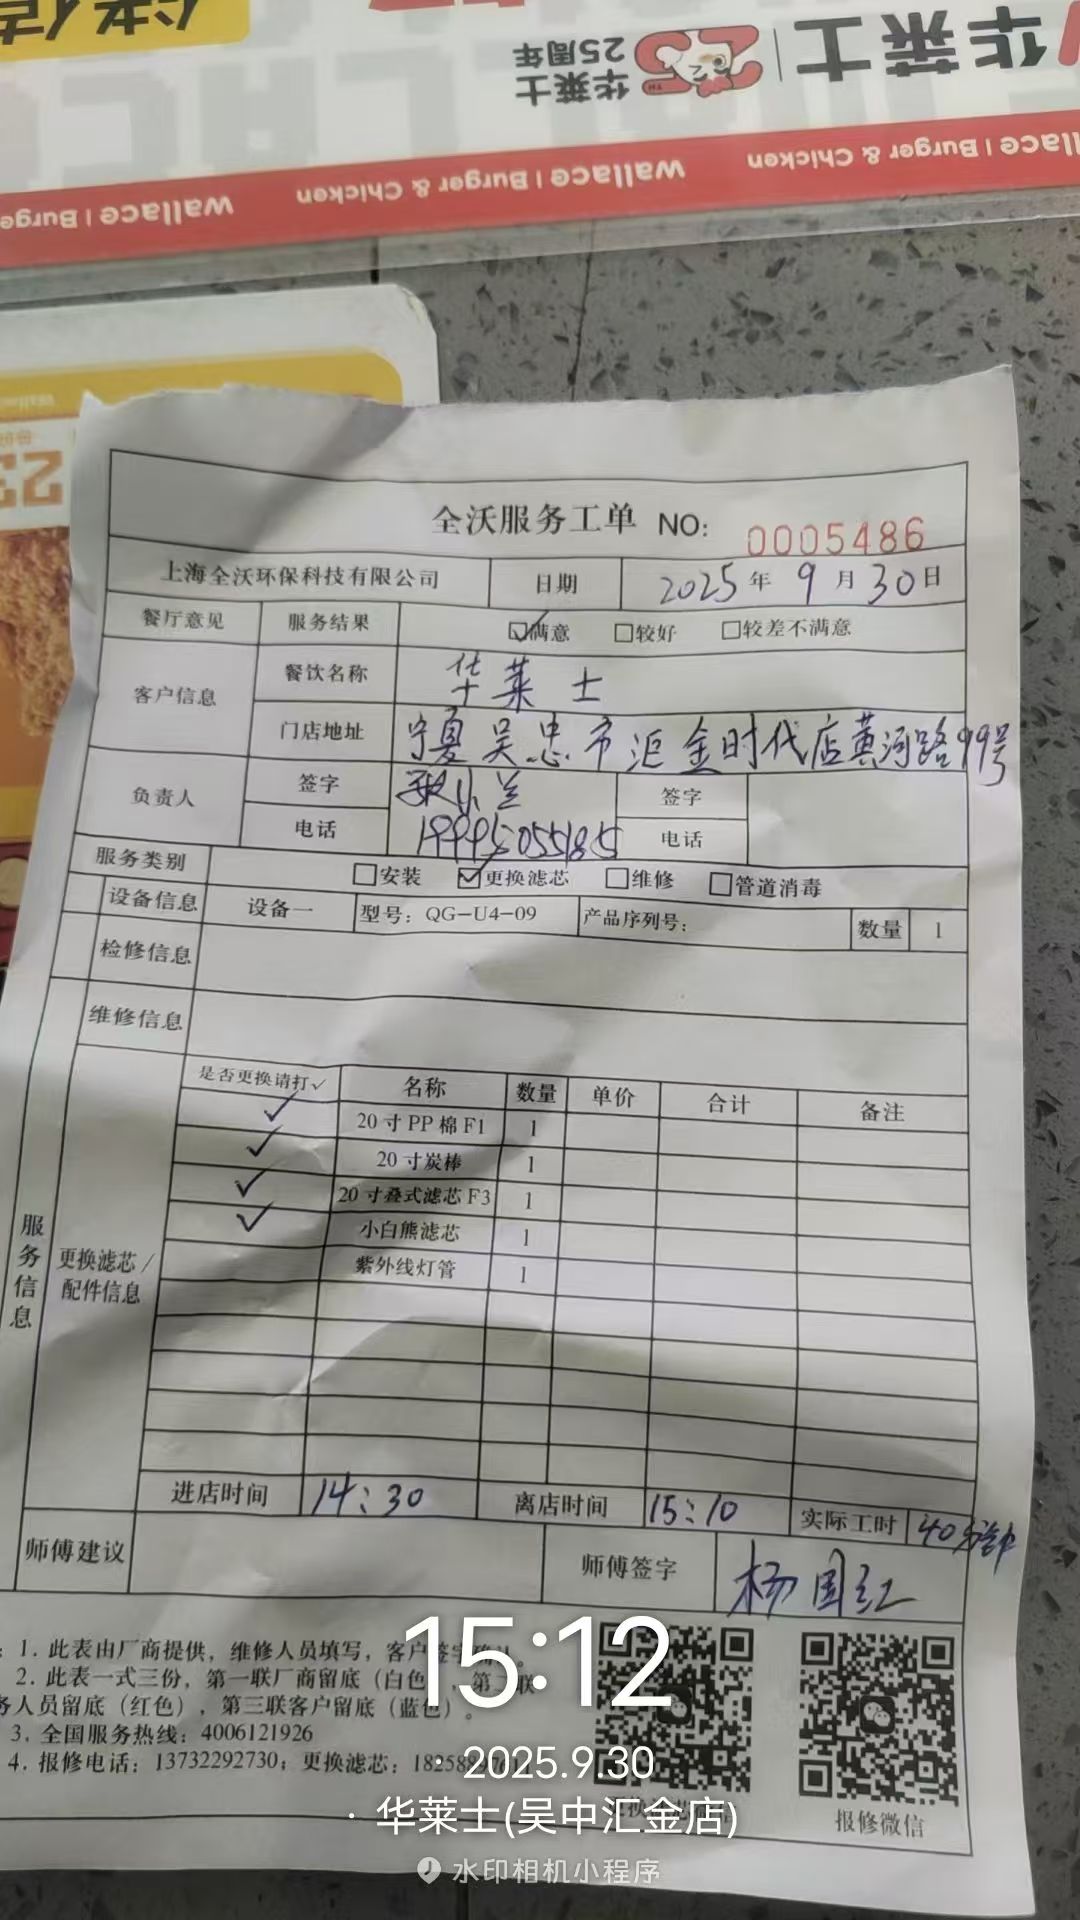 华莱士
华莱士
25周年
Wallace | Burger & Chicken
Wallace | Burger & Chicken
全沃服务工单 NO: 0005486
上海全沃环保科技有限公司 日期 2025年 9月30日
餐厅意见 服务结果 ☑满意 □较好 □较差不满意
客户信息 餐饮名称 华莱士
门店地址 宁夏吴忠市汇金时代店黄河路99号
负责人 签字 签字
电话 19995055185 电话
服务类别 □安装 ☑更换滤芯 □维修 □管道消毒
设备信息 设备一 型号: QG-U4-09 产品序列号: 数量 1
检修信息
维修信息
服务信息
更换滤芯/配件信息
是否更换请打✓ 名称 数量 单价 合计 备注
✓ 20寸PP棉F1 1
✓ 20寸炭棒 1
✓ 20寸叠式滤芯F3 1
✓ 小白熊滤芯 1
紫外线灯管 1
进店时间 14:30 离店时间 15:10 实际工时 40分钟
师傅建议 师傅签字 杨国红
1. 此表由厂商提供，维修人员填写，客户签字确认。
2. 此表一式三份，第一联厂商留底（白色），第二联
务人员留底（红色），第三联客户留底（蓝色）。
3. 全国服务热线：4006121926
4. 报修电话：13732292730；更换滤芯：
报修微信
15:12
2025.9.30
· 华莱士(吴中汇金店)
水印相机小程序